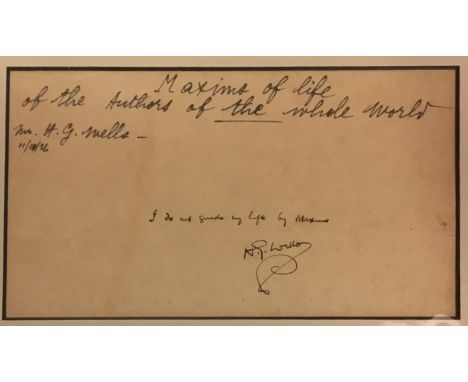 Maxims of life
of the Authors of the whole World
Mr. H. G. Wells —
11/10/26
I do not guide my life by Maxims
H.G. Wells